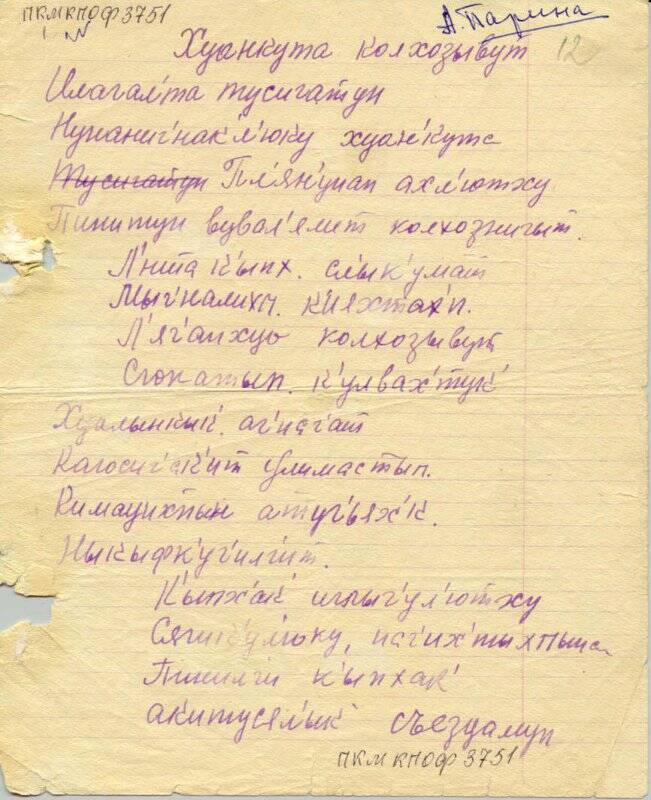 ПКМ КПОФ 3751
А. Парина
Хуанкута колхозывут 12
Илагалта тусигатун
Нунаниг'нак'л'юку хуан'кута
Тусигатун Пл'ян'уиап ахл'ютху
Пинитун вувал'ялит колхознигыт.
Л'ита к'ыпх. слык'умат
Мыг'налихп. к'ияхтах'п.
Л'яг'апхуо колхозывут
Сюпатып. к'улвах'тук'
Хуалынкык'. аг'наг'ат
Кагосиг'ак'ит улимастып.
Кимацихтын атуг'ьях'к.
Ныкыфк'уг'илг'ит.
К'ыпх'ак' иглыг'ул'ютху
Сягик'ул'юку, наг'их'тыхпыша
Пикилги к'ыпхак'
акитусялык' съездамун
ПКМ КПОФ 3751